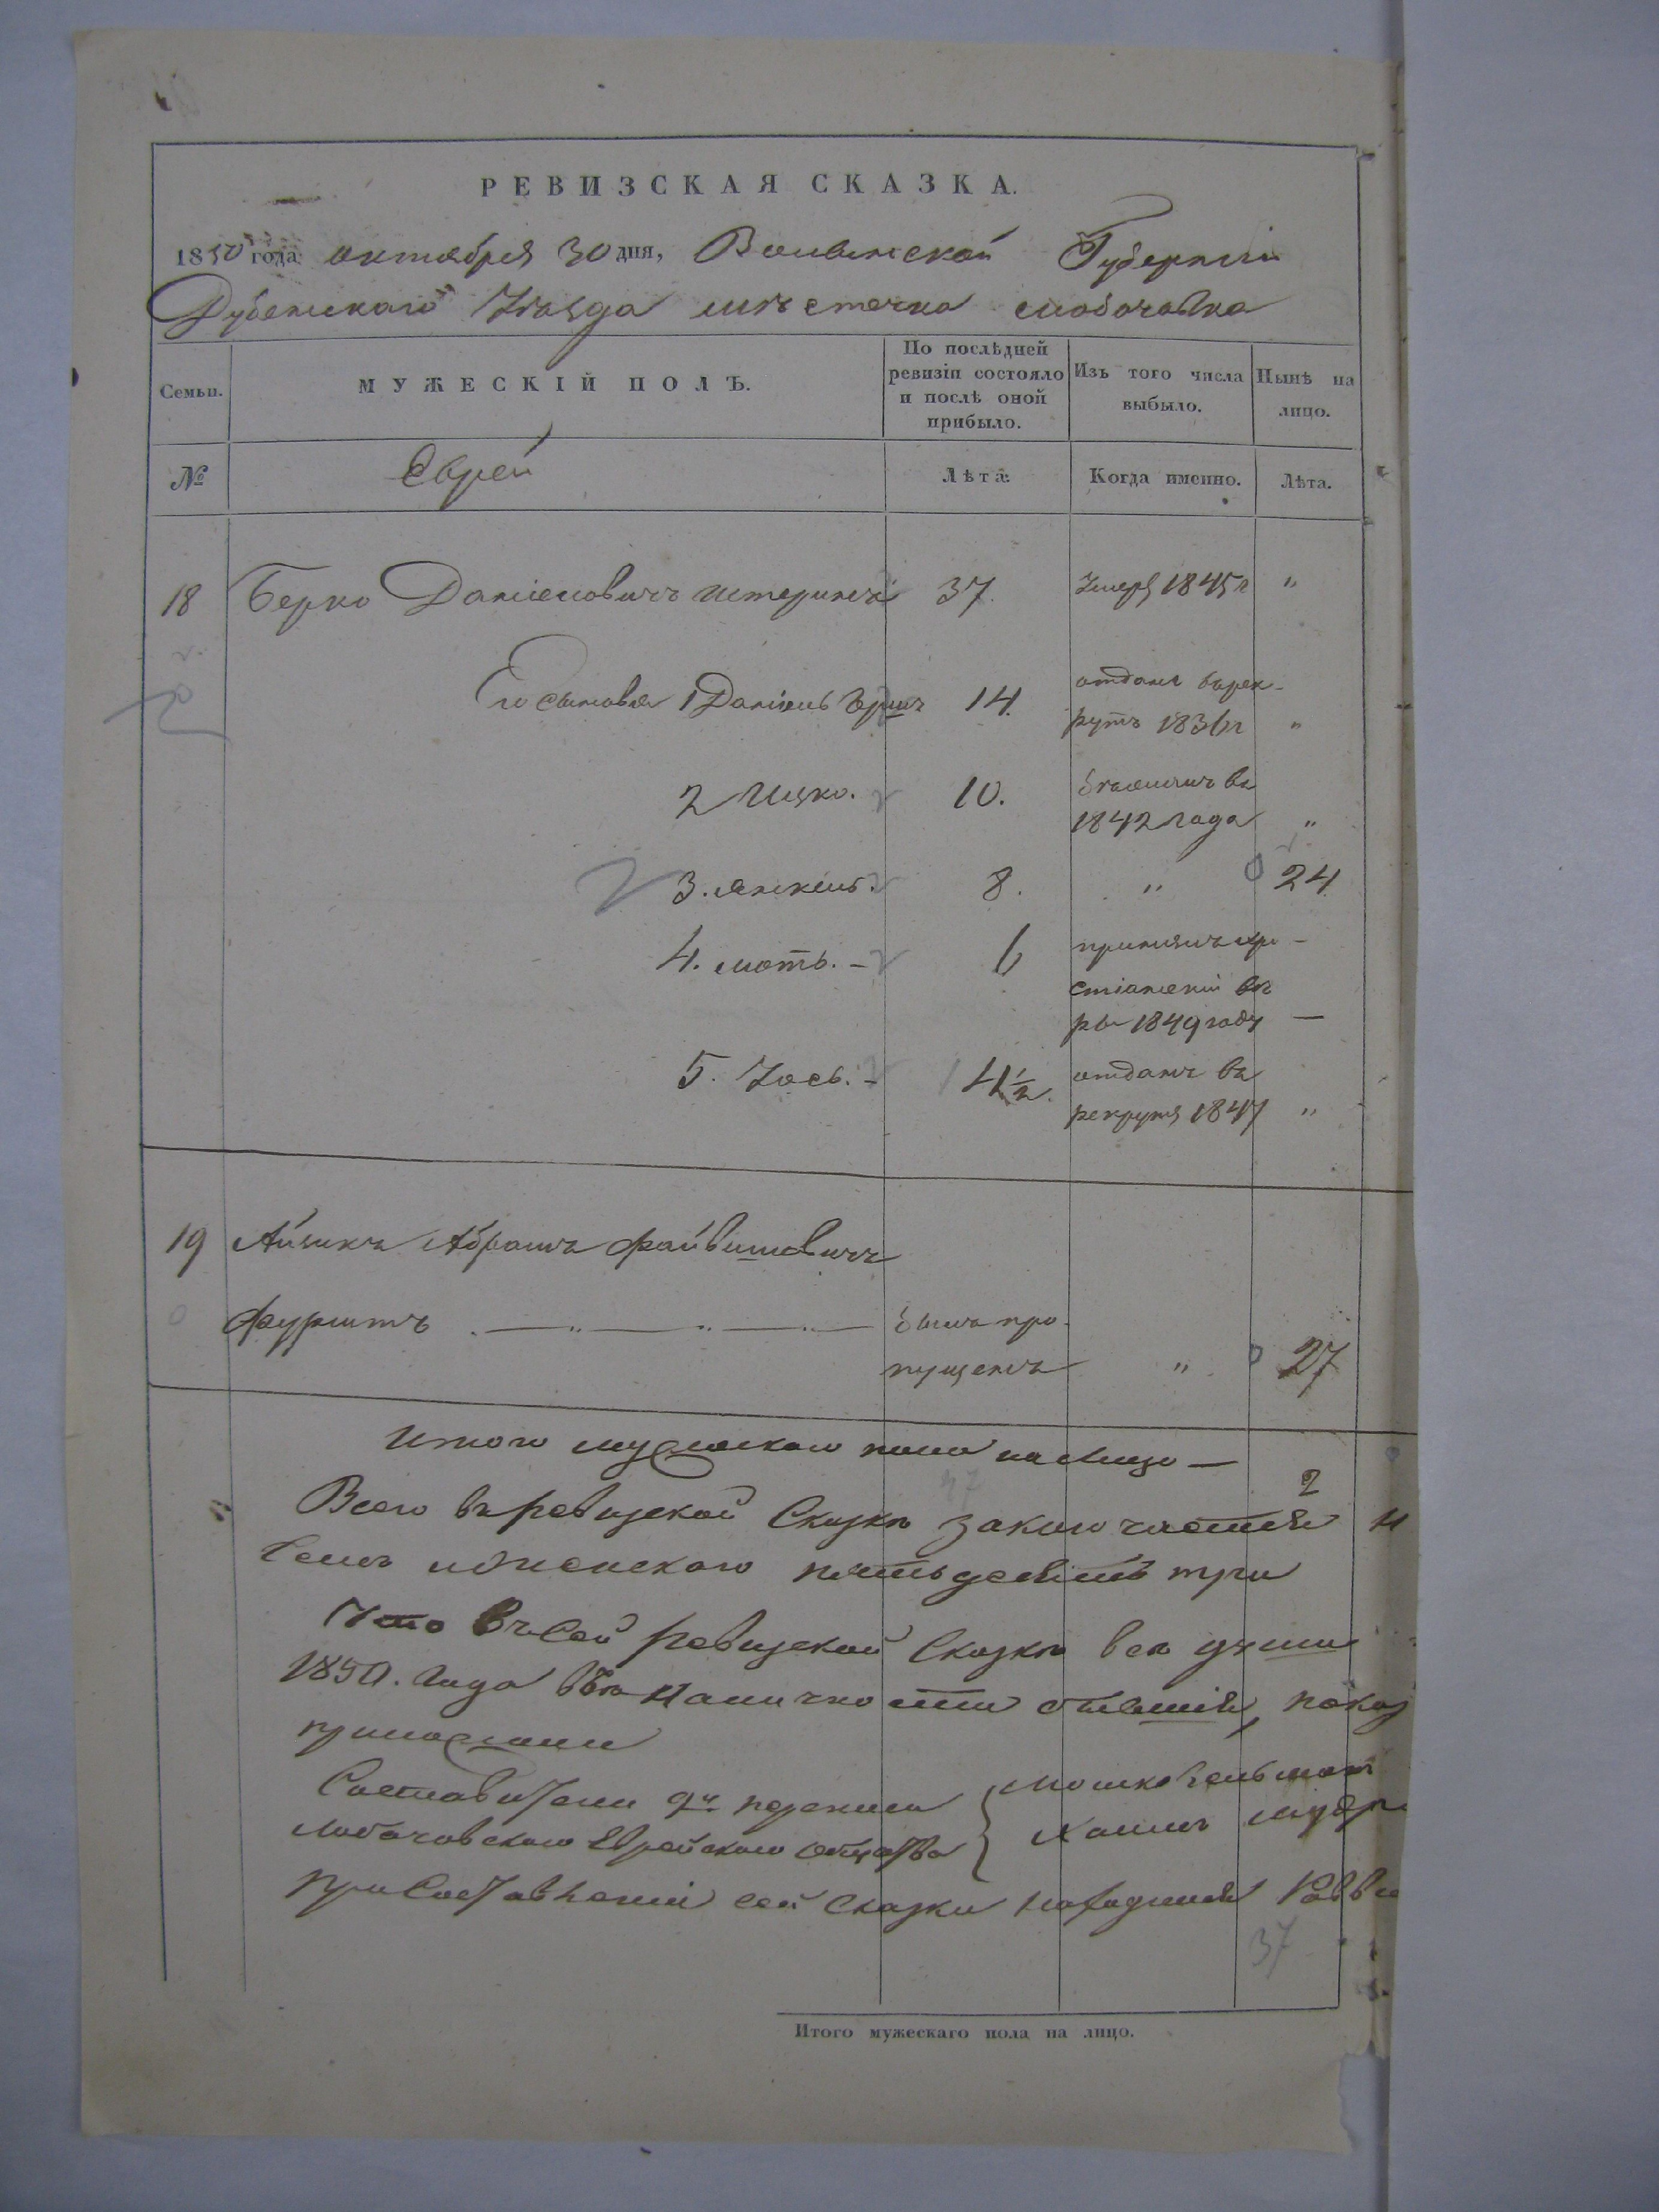 РЕВИЗСКАЯ СКАЗКА.
1850 года октября 30 дня, Волынской Губерніи
Дубенскаго Уѣзда мѣстечка
Семьи.
МУЖЕСКІЙ ПОЛЪ.
По послѣдней ревизіи состояло и послѣ оной прибыло.
Изъ того числа выбыло.
Нынѣ на лицо.
№
Еврei
Лѣта.
Когда именно.
Лѣта.
18 Берко Даніелович 37. Умеръ 1845 г "
Его сыновья 1 Даніель 14. отданъ в рек-
рутъ 1836 г "
2 Ицко. 10. въ
1842 года "
3. Янкель. 8. " 24
4. Моть. - 6 принялъ хри-
стіянскій вѣ
ры 1849 году —
5. Іось. - 4½. отданъ въ
рекруты 1847 "
19 Айзикъ Абрамъ Файвишовичъ
былъ про-
пущенъ " 27
Итого мужескаго пола на лицо — 2
Всего въ ревизской Сказкѣ заключается
семъ и женскаго пятьдесятъ три
Что въ сей ревизской Сказкѣ всѣ души
1850. года въ наличности
Составители 9й переписи
Еврейскаго общества
Мошко
Хаимъ
При составленіи сей Сказки находился
37
Итого мужескаго пола на лицо.